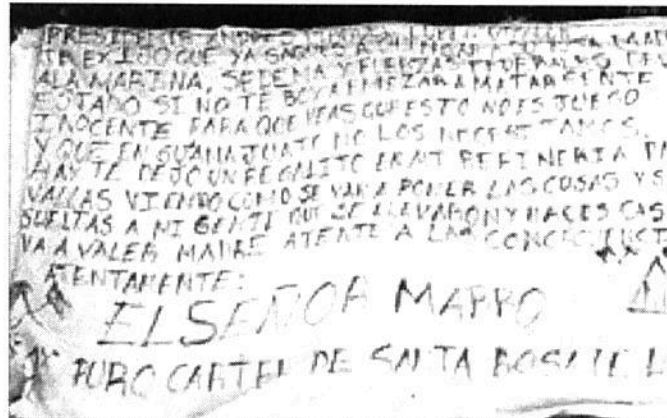 PRESIDENTE ANDRES MANUEL LOPEZ OBRADOR
TE EXIJO QUE YA SAQUES A
A LA MARINA, SEDENA Y FUERZAS FEDERALES DEL
ESTADO SI NO TE BOY A EMPEZAR A MATAR GENTE
INOCENTE PARA QUE VEAS QUE ESTO NO ES JUEGO
Y QUE EN GUANAJUATO NO LOS NECESITAMOS.
HAY TE DEJO UN REGALITO EN MI REFINERIA PA
VALLAS VIENDO COMO SE VAN A PONER LAS COSAS Y S
SUELTAS A MI GENTE QUE SE LLEVARON Y HACES CAS
VA A VALER MADRE ATENTE A LAS CONCECUENCI
ATENTAMENTE:
EL SEÑOR MARRO
PURO CARTEL DE SANTA ROSA DE L